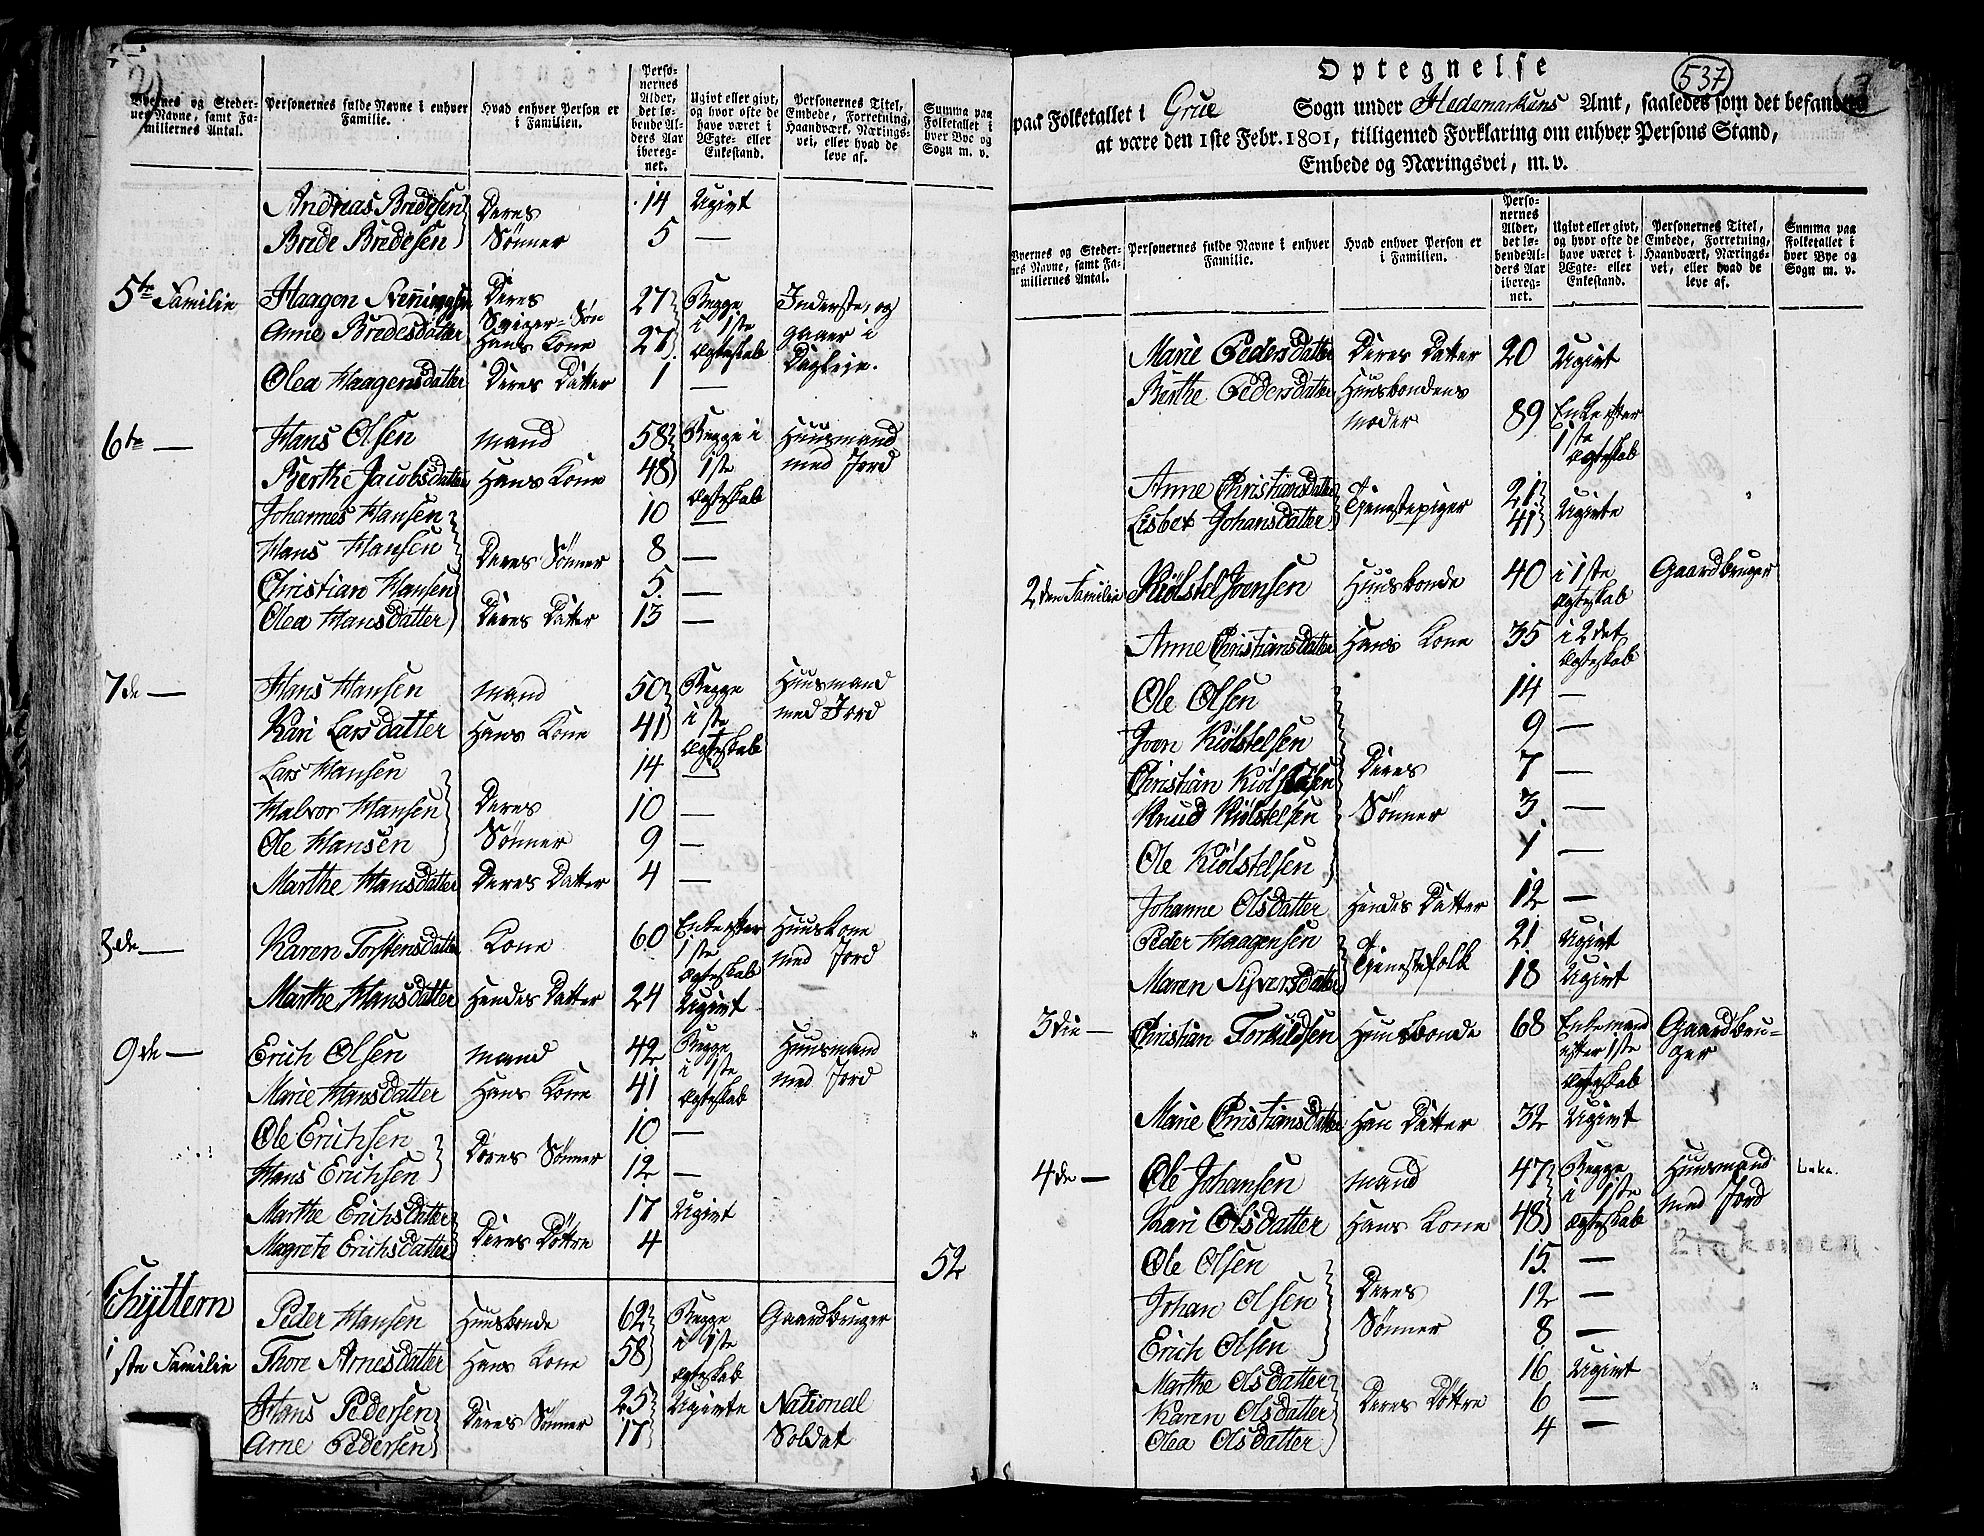 Byernes og Steder-
nes Navne, samt Fa-
miliernes Antal.
Personernes fulde Navne i enhver
Familie.
Hvad enhver Person er
i Familien.
Perso-
nernes
Alder,
det lø-
bende Al-
ders Aar
iberegn-
net.
Ugivt eller givt,
og hvor ofte de
have været i
Ægte- eller
Enkestand.
Personernes Titel,
Embede, Forretning,
Haandværk, Nærings-
vei, eller hvad de
leve af.
Summa paa
Folketallet i
hver Bye og
Sogn m. v.
Andreas Bredesen Deres 14 Ugivt
Brede Bredesen Sønner 5 —
5te Familie Haagen Deres Sviger-Søn 27 Begge Inderste, og
Anne Bredesdatter Hans Kone 27 i 1ste Ægteskab gaaer i
Olea Haagensdatter Deres Datter 1 — Dagleie.
6te — Hans Olsen Mand 58 Begge i Huusmand
Berthe Jacobsdatter Hans Kone 48 1ste Ægteskab med Jord
Johannes Hansen 10 —
Hans Hansen Deres Sønner 8 —
Christian Hansen 5 —
Olea Hansdatter Deres Datter 13 —
7de — Hans Hansen Mand 50 Begge Huusmand
Kari Larsdatter Hans Kone 41 i 1ste Ægteskab med Jord
Lars Hansen 14 —
Halvor Hansen Deres 10 —
Ole Hansen Sønner 9 —
Marthe Hansdatter Deres Datter 4 —
8de — Karen Torstensdatter Kone 60 Enke efter 1ste Ægteskab Huuskone med Jord
Marthe Hansdatter Hendes Datter 24 Ugivt
9de — Erich Olsen Mand 42 Begge Huusmand
Marie Hansdatter Hans Kone 41 i 1ste Ægteskab med Jord
Ole Erichsen 10 —
Hans Erichsen Deres Sønner 12 —
Marthe Erichsdatter 17 Ugivt
Magrete Erichsdatter Deres Døttre 4
52
Schÿttern
1ste Familie Peder Hansen Huusbonde 62 Begge Gaardbruger
Thore Arnesdatter Hans Kone 58 i 1ste Ægteskab
Hans Pedersen Deres Sønner 25 Ugivte National
Arne Pedersen 17 Soldat
Optegnelse
537
paa Folketallet i Grue Sogn under Hedemarkens Amt, saaledes som det befandtes
at være den 1ste Febr. 1801, tilligemed Forklaring om enhver Persons Stand,
Embede og Næringsvei, m. v.
Byernes og Steder-
nes Navne, samt Fa-
miliernes Antal.
Personernes fulde Navne i enhver
Familie.
Hvad enhver Person er
i Familien.
Perso-
nernes
Alder,
det lø-
bende Al-
ders Aar
iberegn-
net.
Ugivt eller givt,
og hvor ofte de
have været i
Ægte- eller
Enkestand.
Personernes Titel,
Embede, Forretning,
Haandværk, Nærings-
vei, eller hvad de
leve af.
Summa paa
Folketallet i
hver Bye og
Sogn m. v.
Marie Pedersdatter Deres Datter 20 Ugivt
Berthe Pedersdatter Huusbondens Moder 89 Enke efter 1ste Ægteskab
Anne Christiansdatter Tjenestepiger 21 Ugivte
Lisbet Johansdatter 41
2den Familie Kiölstel Joensen Huusbonde 40 i 1ste Ægteskab Gaardbruger
Anne Christiansdatter Hans Kone 35 i 2det Ægteskab
Ole Olsen 14 —
Joen Kiölstelsen 9 —
Christian Kiölstelsen Deres 7 —
Knud Kiölstelsen Sønner 3 —
Ole Kiölstelsen 1 —
Johanne Olsdatter Hendes Datter 12 —
Peder Haagensen Tjenestefolk 21 Ugivt
Maren Siversdatter 18 Ugivt
3die — Christian Torkildsen Huusbonde 68 Enkemand efter 1ste Ægteskab Gaardbru-
ger
Marie Christiansdatter Han Datter 32 Ugivt
4de — Ole Johansen Mand 47 Begge Huusmand
Kari Olsdatter Hans Kone 48 i 1ste Ægteskab med Jord
Ole Olsen 15 —
Johan Olsen Deres 12 —
Erich Olsen Sønner 8 —
Marthe Olsdatter 16 Ugivt
Karen Olsdatter Deres Døttre 6 —
Olea Olsdatter 4 —